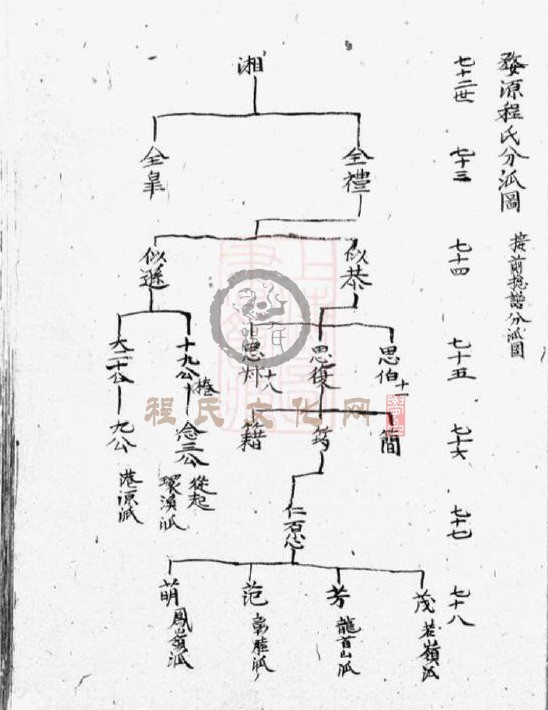 婺源程氏分派圖 接前捴譜分派圖
七十二世
七十三
七十四
七十五
七十六
七十七
七十八
湘
全禮
全皐
似恭
似遜
思伯 十一
思復 十八
十九公 捲
大二十公
簡
籍
念三公 從起 環溪派
九公 港源派
茂 若嶺派
芳 龍首山派
范
萌 鳳嶺派
程氏文化网